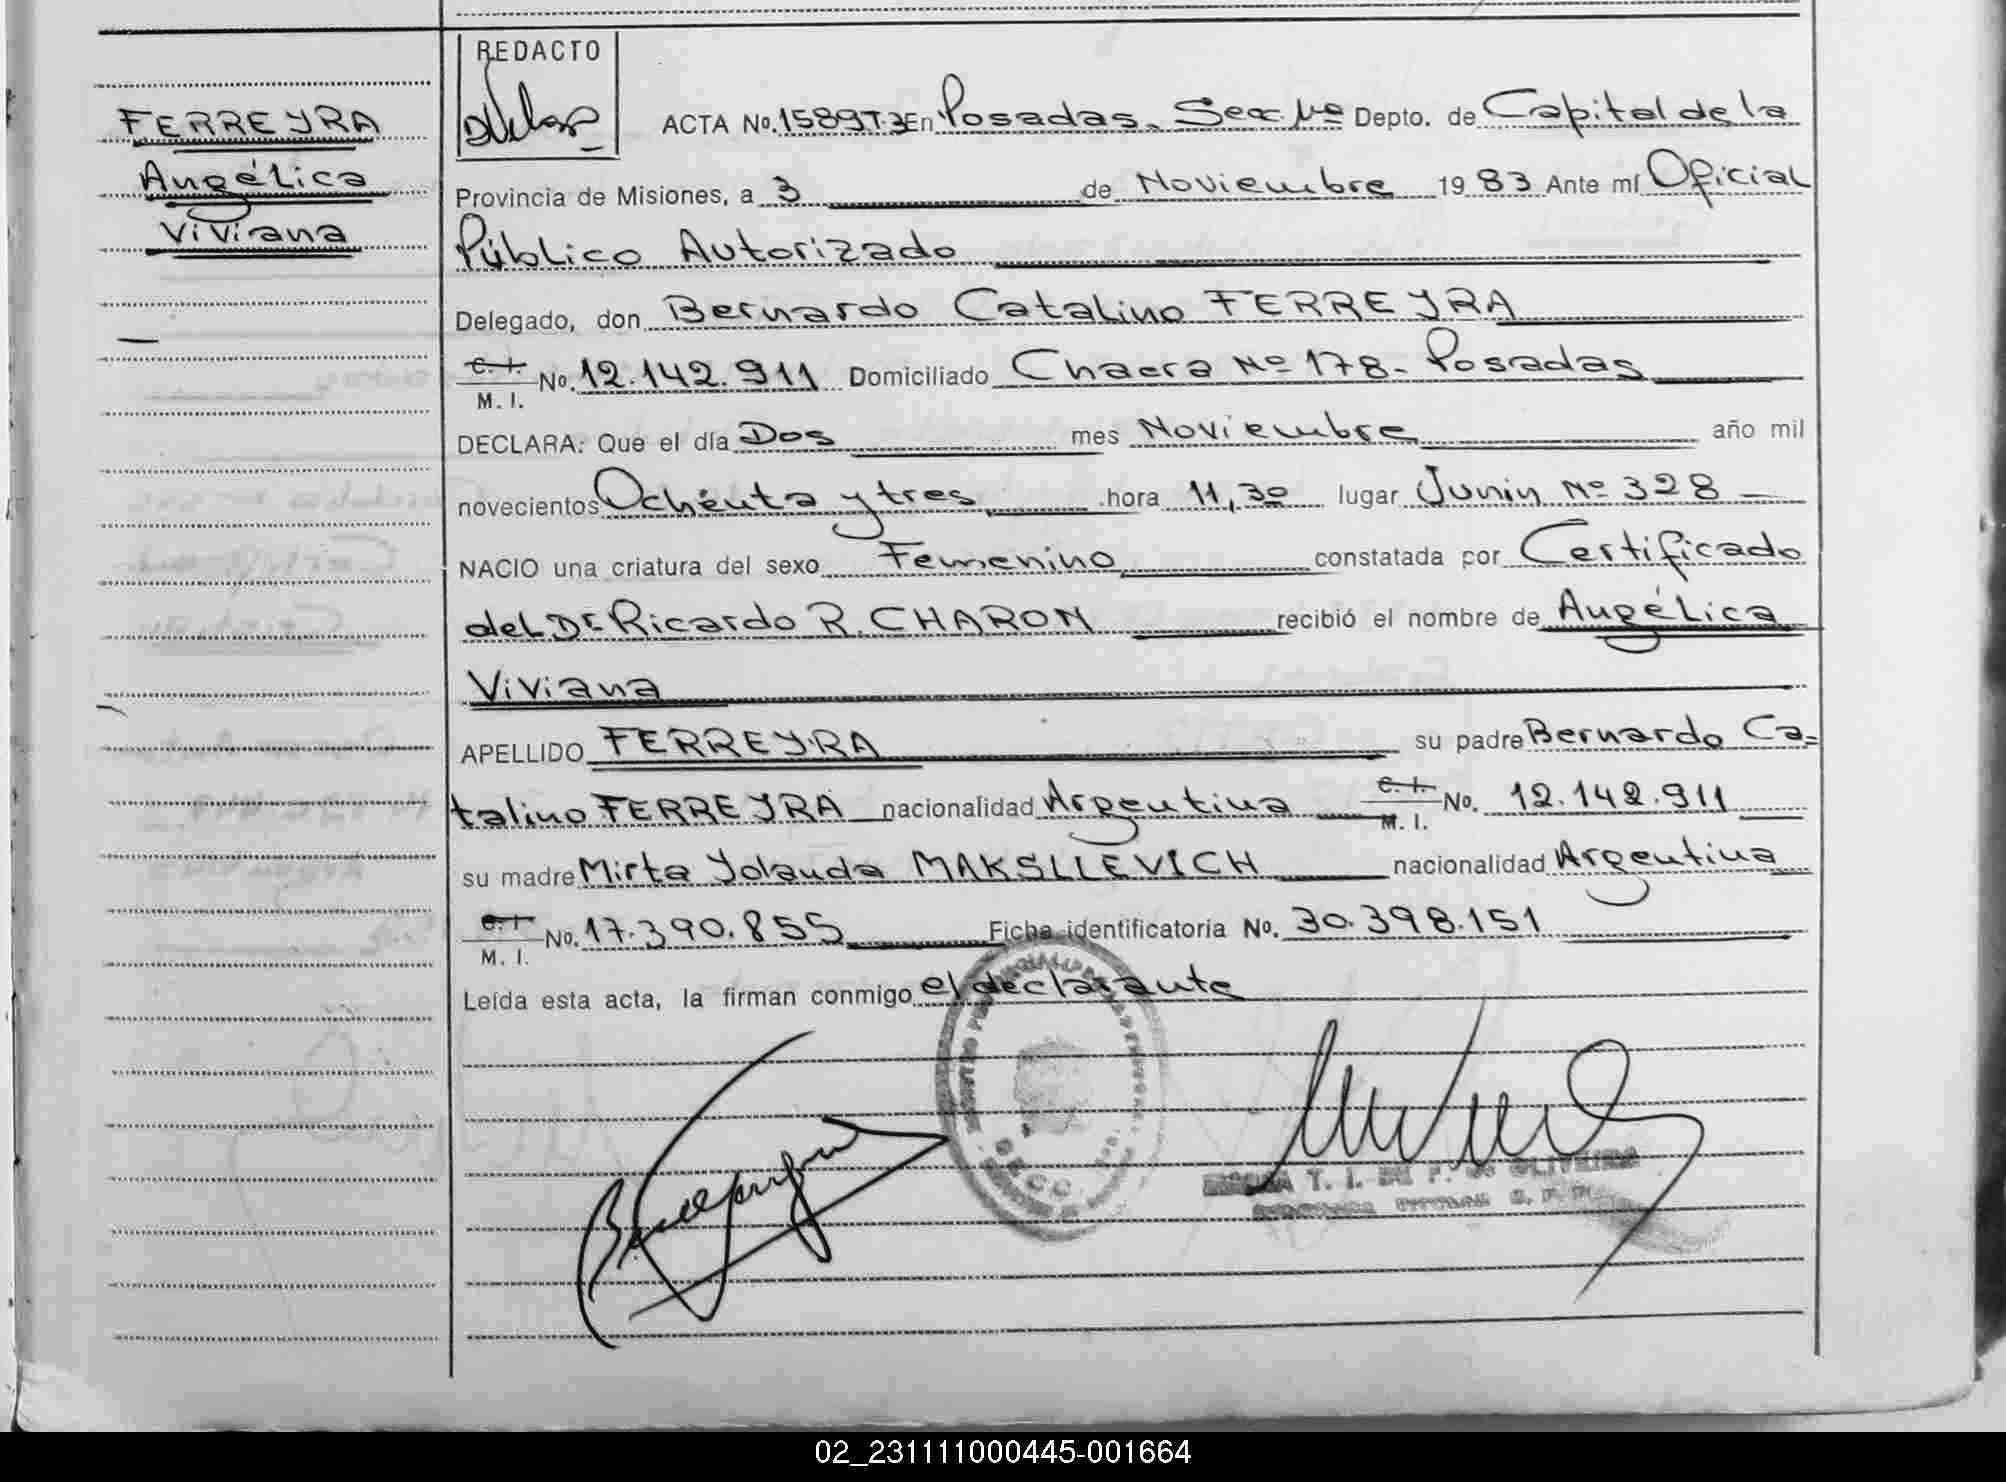 FERREYRA
Angélica
Viviana
REDACTO
ACTA No. 1589 T.3 En Posadas. Secc. 1ª Depto. de Capital de la
Provincia de Misiones, a 3 de Noviembre 1983 Ante mí Oficial
Público Autorizado
Delegado, don Bernardo Catalino FERREYRA
C. I. No. 12.142.911 Domiciliado Chacra Nº 178- Posadas
M. I.
DECLARA: Que el día Dos mes Noviembre año mil
novecientos Ochenta y tres hora 11,30 lugar Junín Nº 328
NACIO una criatura del sexo Femenino constatada por Certificado
del Dr Ricardo R. CHARON recibió el nombre de Angélica
Viviana
APELLIDO FERREYRA su padre Bernardo Ca-
talino FERREYRA nacionalidad Argentina C. I. No. 12.142.911
M. I.
su madre Mirta Yolanda MAKSLLEVICH nacionalidad Argentina
C. I. No. 17.390.855 Ficha identificatoria No. 30.398.151
M. I.
Leída esta acta, la firman conmigo el declarante
02_231111000445-001664